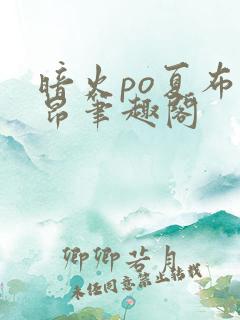 暗火po夏布
昂笔趣阁
卿卿若月
未经同意禁止转载